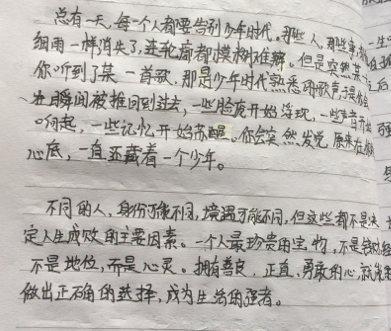 总有一天,每一个人都要告别少年时代。那些人、那些事
细雨一样消失了,连轮廓都模糊难辨。但是突然某
你听到了某一首歌,那是少年时代熟悉的歌
在瞬间被推回到过去,一些脸庞开始浮现,一些声音开始
响起,一些记忆开始苏醒。你会突然发觉,原来在你
心底,一直还藏着一个少年。
不同的人,身份可能不同,境遇可能不同,但这些都不是决
定人生成败的主要因素。一个人最珍贵的宝物,不是
不是地位,而是心灵。拥有善良、正直、勇敢的心,就
做出正确的选择,成为生活的强者。